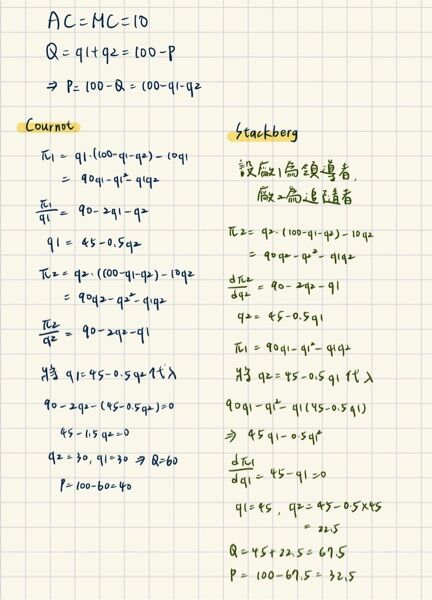 AC=MC=10
Q=q1+q2=100-P
⇒ P=100-Q=100-q1-q2
Cournot
π1 = q1·(100-q1-q2)-10q1
= 90q1-q1²-q1q2
π1/q1 = 90-2q1-q2
q1 = 45-0.5q2
π2 = q2·(100-q1-q2)-10q2
= 90q2-q2²-q1q2
π2/q2 = 90-2q2-q1
將 q1=45-0.5q2代入
90-2q2-(45-0.5q2)=0
45-1.5q2=0
q2=30, q1=30 ⇒ Q=60
P=100-60=40
Stackberg
設廠1為領導者,
廠2為追隨者
π2 = q2·(100-q1-q2)-10q2
= 90q2-q2²-q1q2
dπ2/dq2 = 90-2q2-q1
q2=45-0.5q1
π1 = 90q1-q1²-q1q2
將 q2=45-0.5q1代入
90q1-q1²-q1(45-0.5q1)
⇒ 45q1-0.5q1²
dπ1/dq1 = 45-q1=0
q1=45, q2=45-0.5×45
= 22.5
Q=45+22.5=67.5
P=100-67.5=32.5